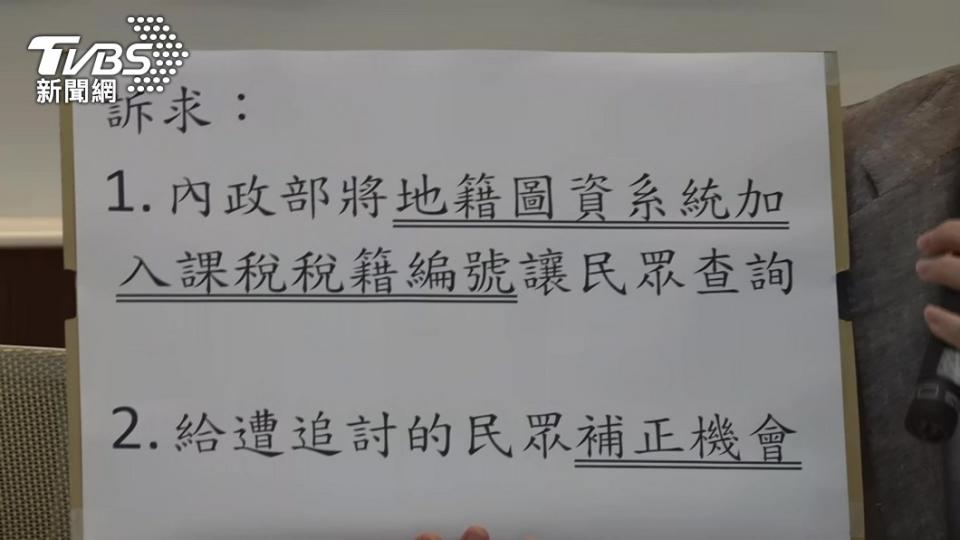 TVBS
新聞網
訴求：
1. 內政部將地籍圖資系統加
入課稅稅籍編號讓民眾查詢
2. 給遭追討的民眾補正機會